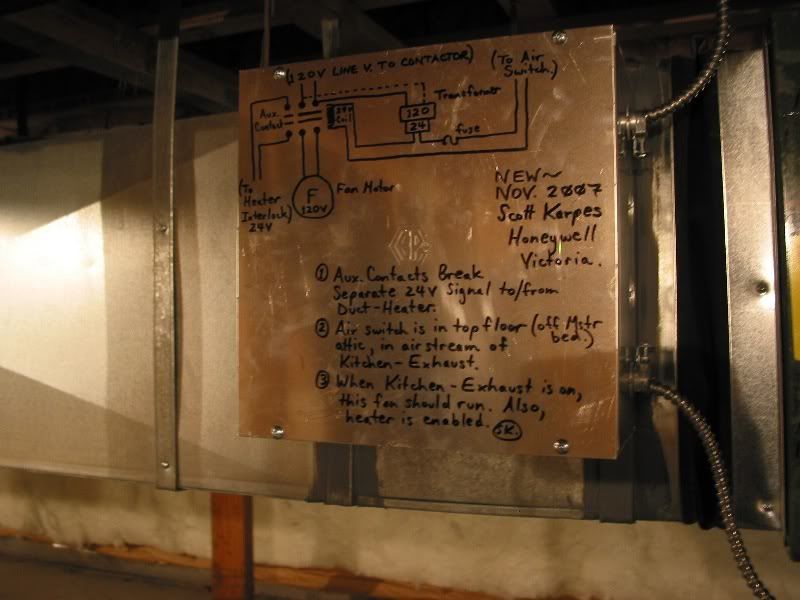 (120V LINE V. TO CONTACTOR)
(To Air
Switch.)
Transformer
120
24
fuse
24V
Coil
Aux.
Contact
(To
Heater
Interlock)
24V
F
120V
Fan Motor
NEW~
NOV. 2007
Scott Karpes
Honeywell
Victoria.
① Aux. Contacts Break
Separate 24V Signal to/from
Duct-Heater.
② Air switch is in top floor (off Mstr
bed.)
attic, in airstream of
Kitchen-Exhaust.
③ When Kitchen-Exhaust is on,
this fan should run. Also,
heater is enabled. SK.